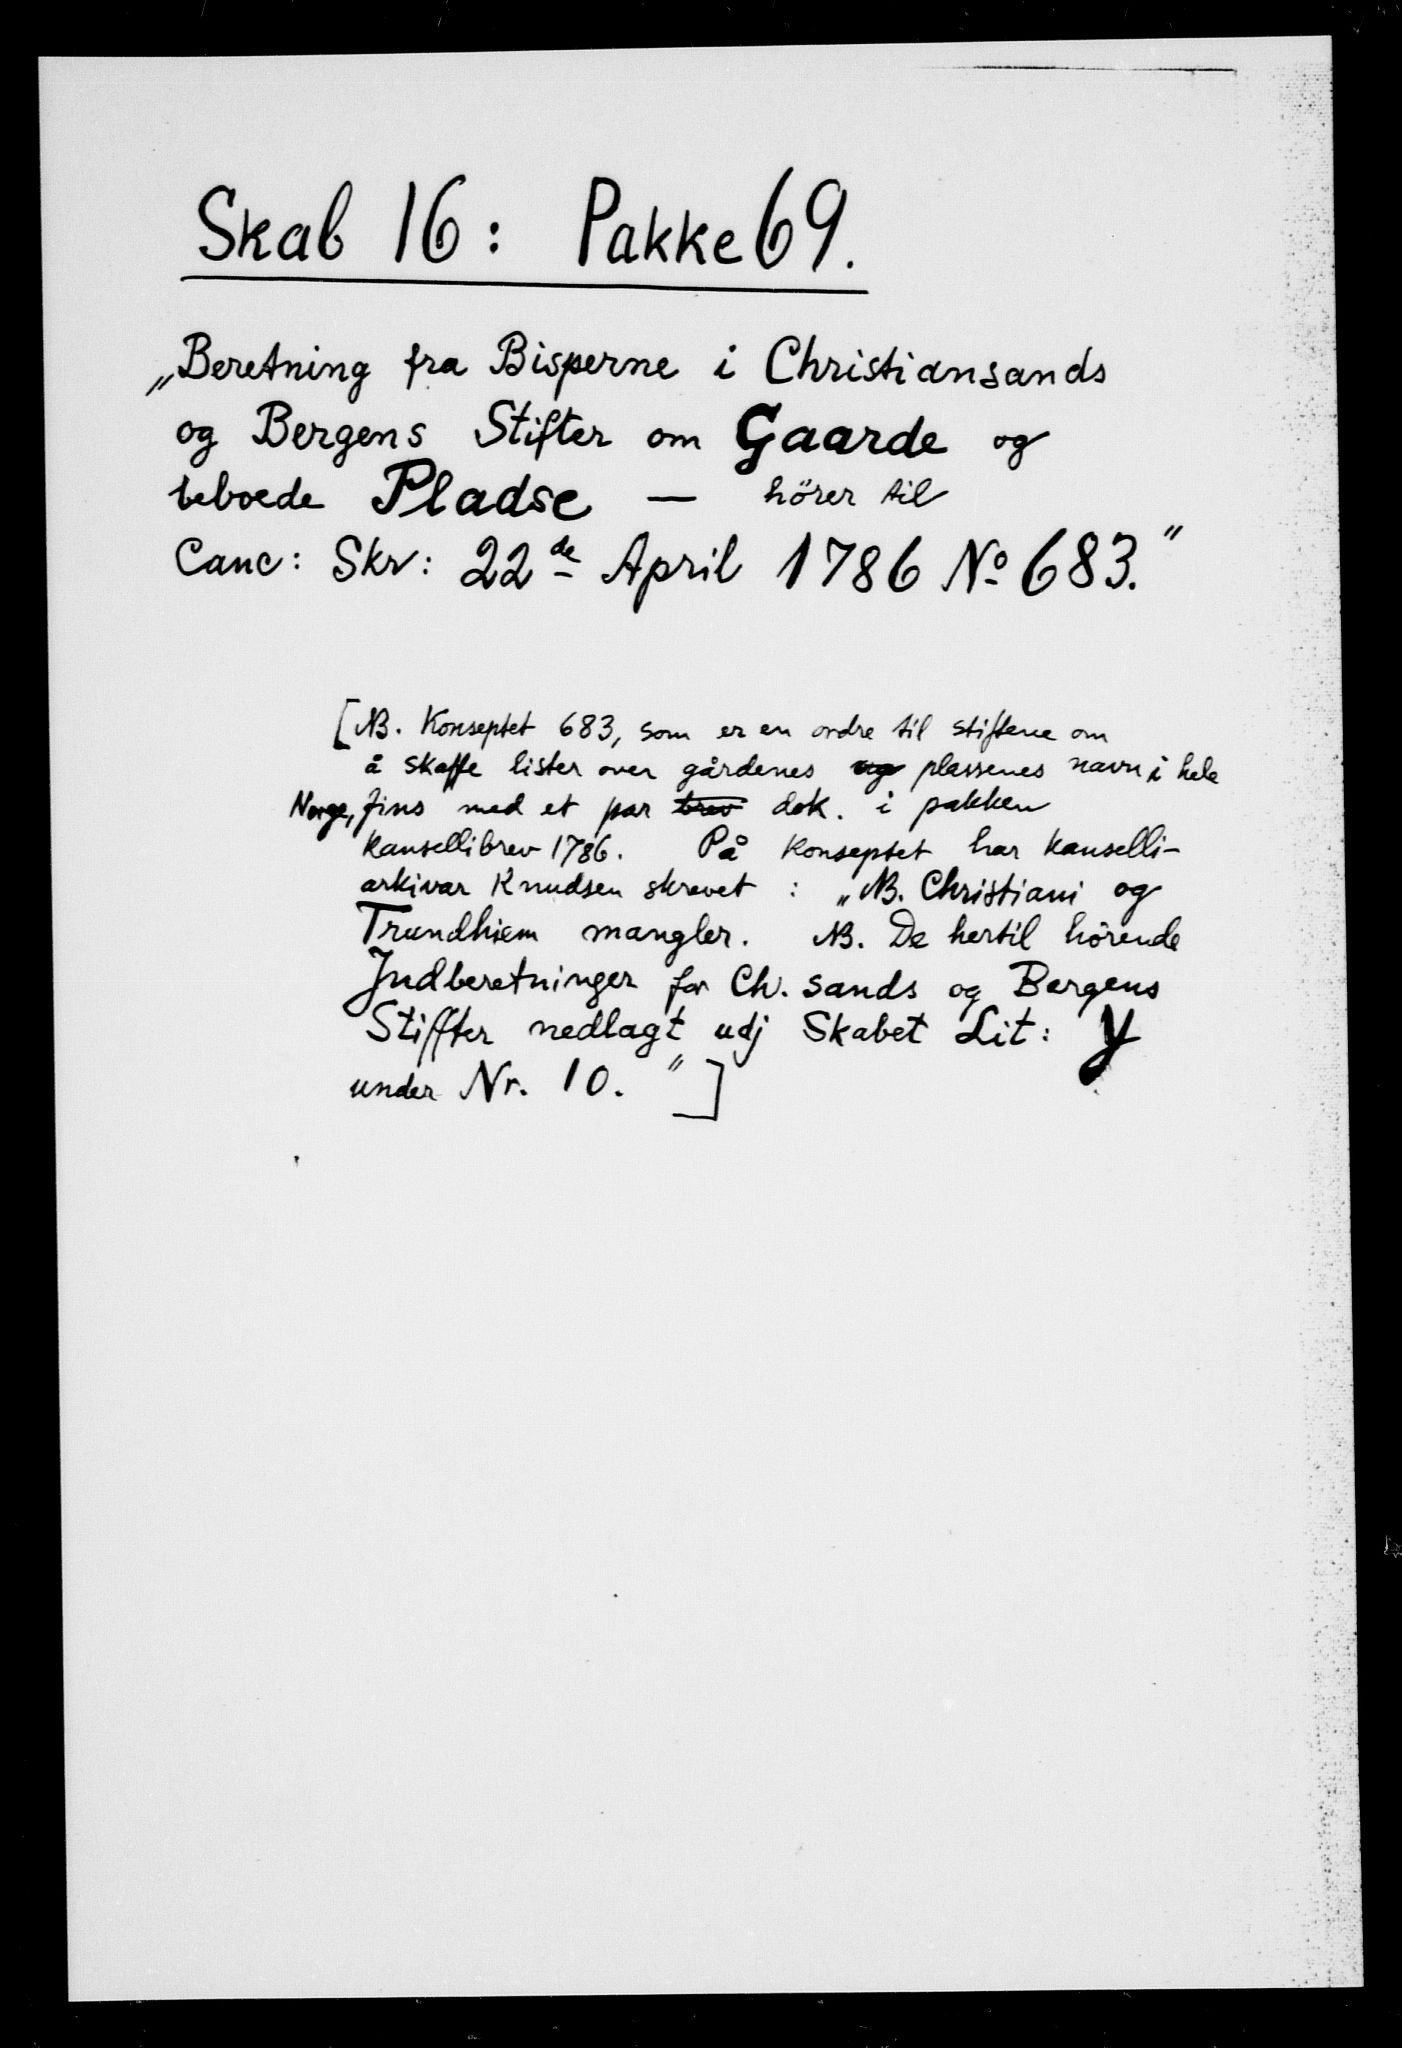 Skab 16: Pakke 69.
„Beretning fra Bisperne i Christiansands
og Bergens Stifter om Gaarde og
beboede Pladse — hörer til
Canc: Skr: 22de April 1786 No 683."
[NB. Konseptet 683, som er en ordre til stiftene om
å skaffe lister over gårdenes og plassenes navn i hele
Norge, fins med et par brev dok. i pakken
kansellibrev 1786. På konseptet har kanselli-
arkivar Knudsen skrevet: „NB. Christiani og
Trundhiem mangler. NB. De hertil hörende
Indberetninger for Ch. sands og Bergens
Stiffter nedlagt udj Skabet Lit: Y
under Nr. 10."]